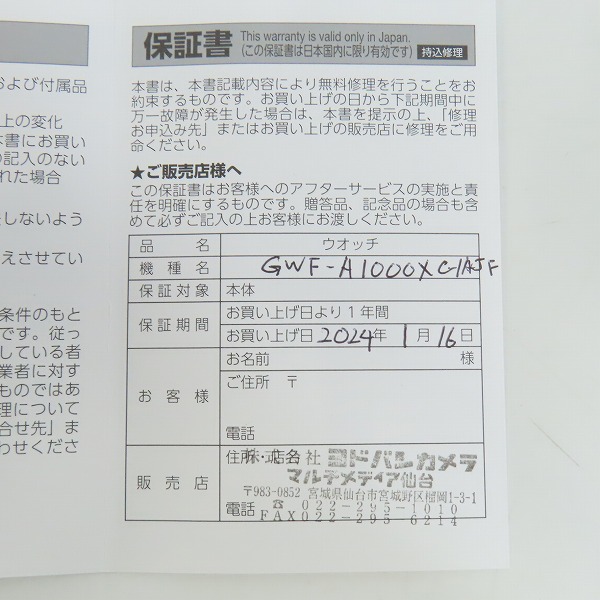 および付属品
上の変化
本書にお買い
の記入のない
られた場合
しないよう
えさせてい
条件のもと
です。従っ
している者
業者に対す
ものではあ
理について
合せ先」ま
わせくださ
保証書 This warranty is valid only in Japan.
(この保証書は日本国内に限り有効です) 持込修理
本書は、本書記載内容により無料修理を行うことをお
約束するものです。お買い上げの日から下記期間中に
万一故障が発生した場合は、本書を提示の上、「修理
お申込み先」またはお買い上げの販売店に修理をご用
命ください。
★ご販売店様へ
この保証書はお客様へのアフターサービスの実施と責
任を明確にするものです。贈答品、記念品の場合も含
めて必ずご記入の上お客様にお渡しください。
品名 ウオッチ
機種名 GWF-A1000XC-1AJF
保証対象 本体
保証期間 お買い上げ日より1年間
お買い上げ日 2024年 1月 16日
お客様 お名前 様
ご住所 〒
電話
販売店 住所・店名
株式会社 ヨドバシカメラ
マルチメディア仙台
〒983-0852 宮城県仙台市宮城野区榴岡1-3-1
電話 ☎ 022-295-1010
FAX022-295-6214